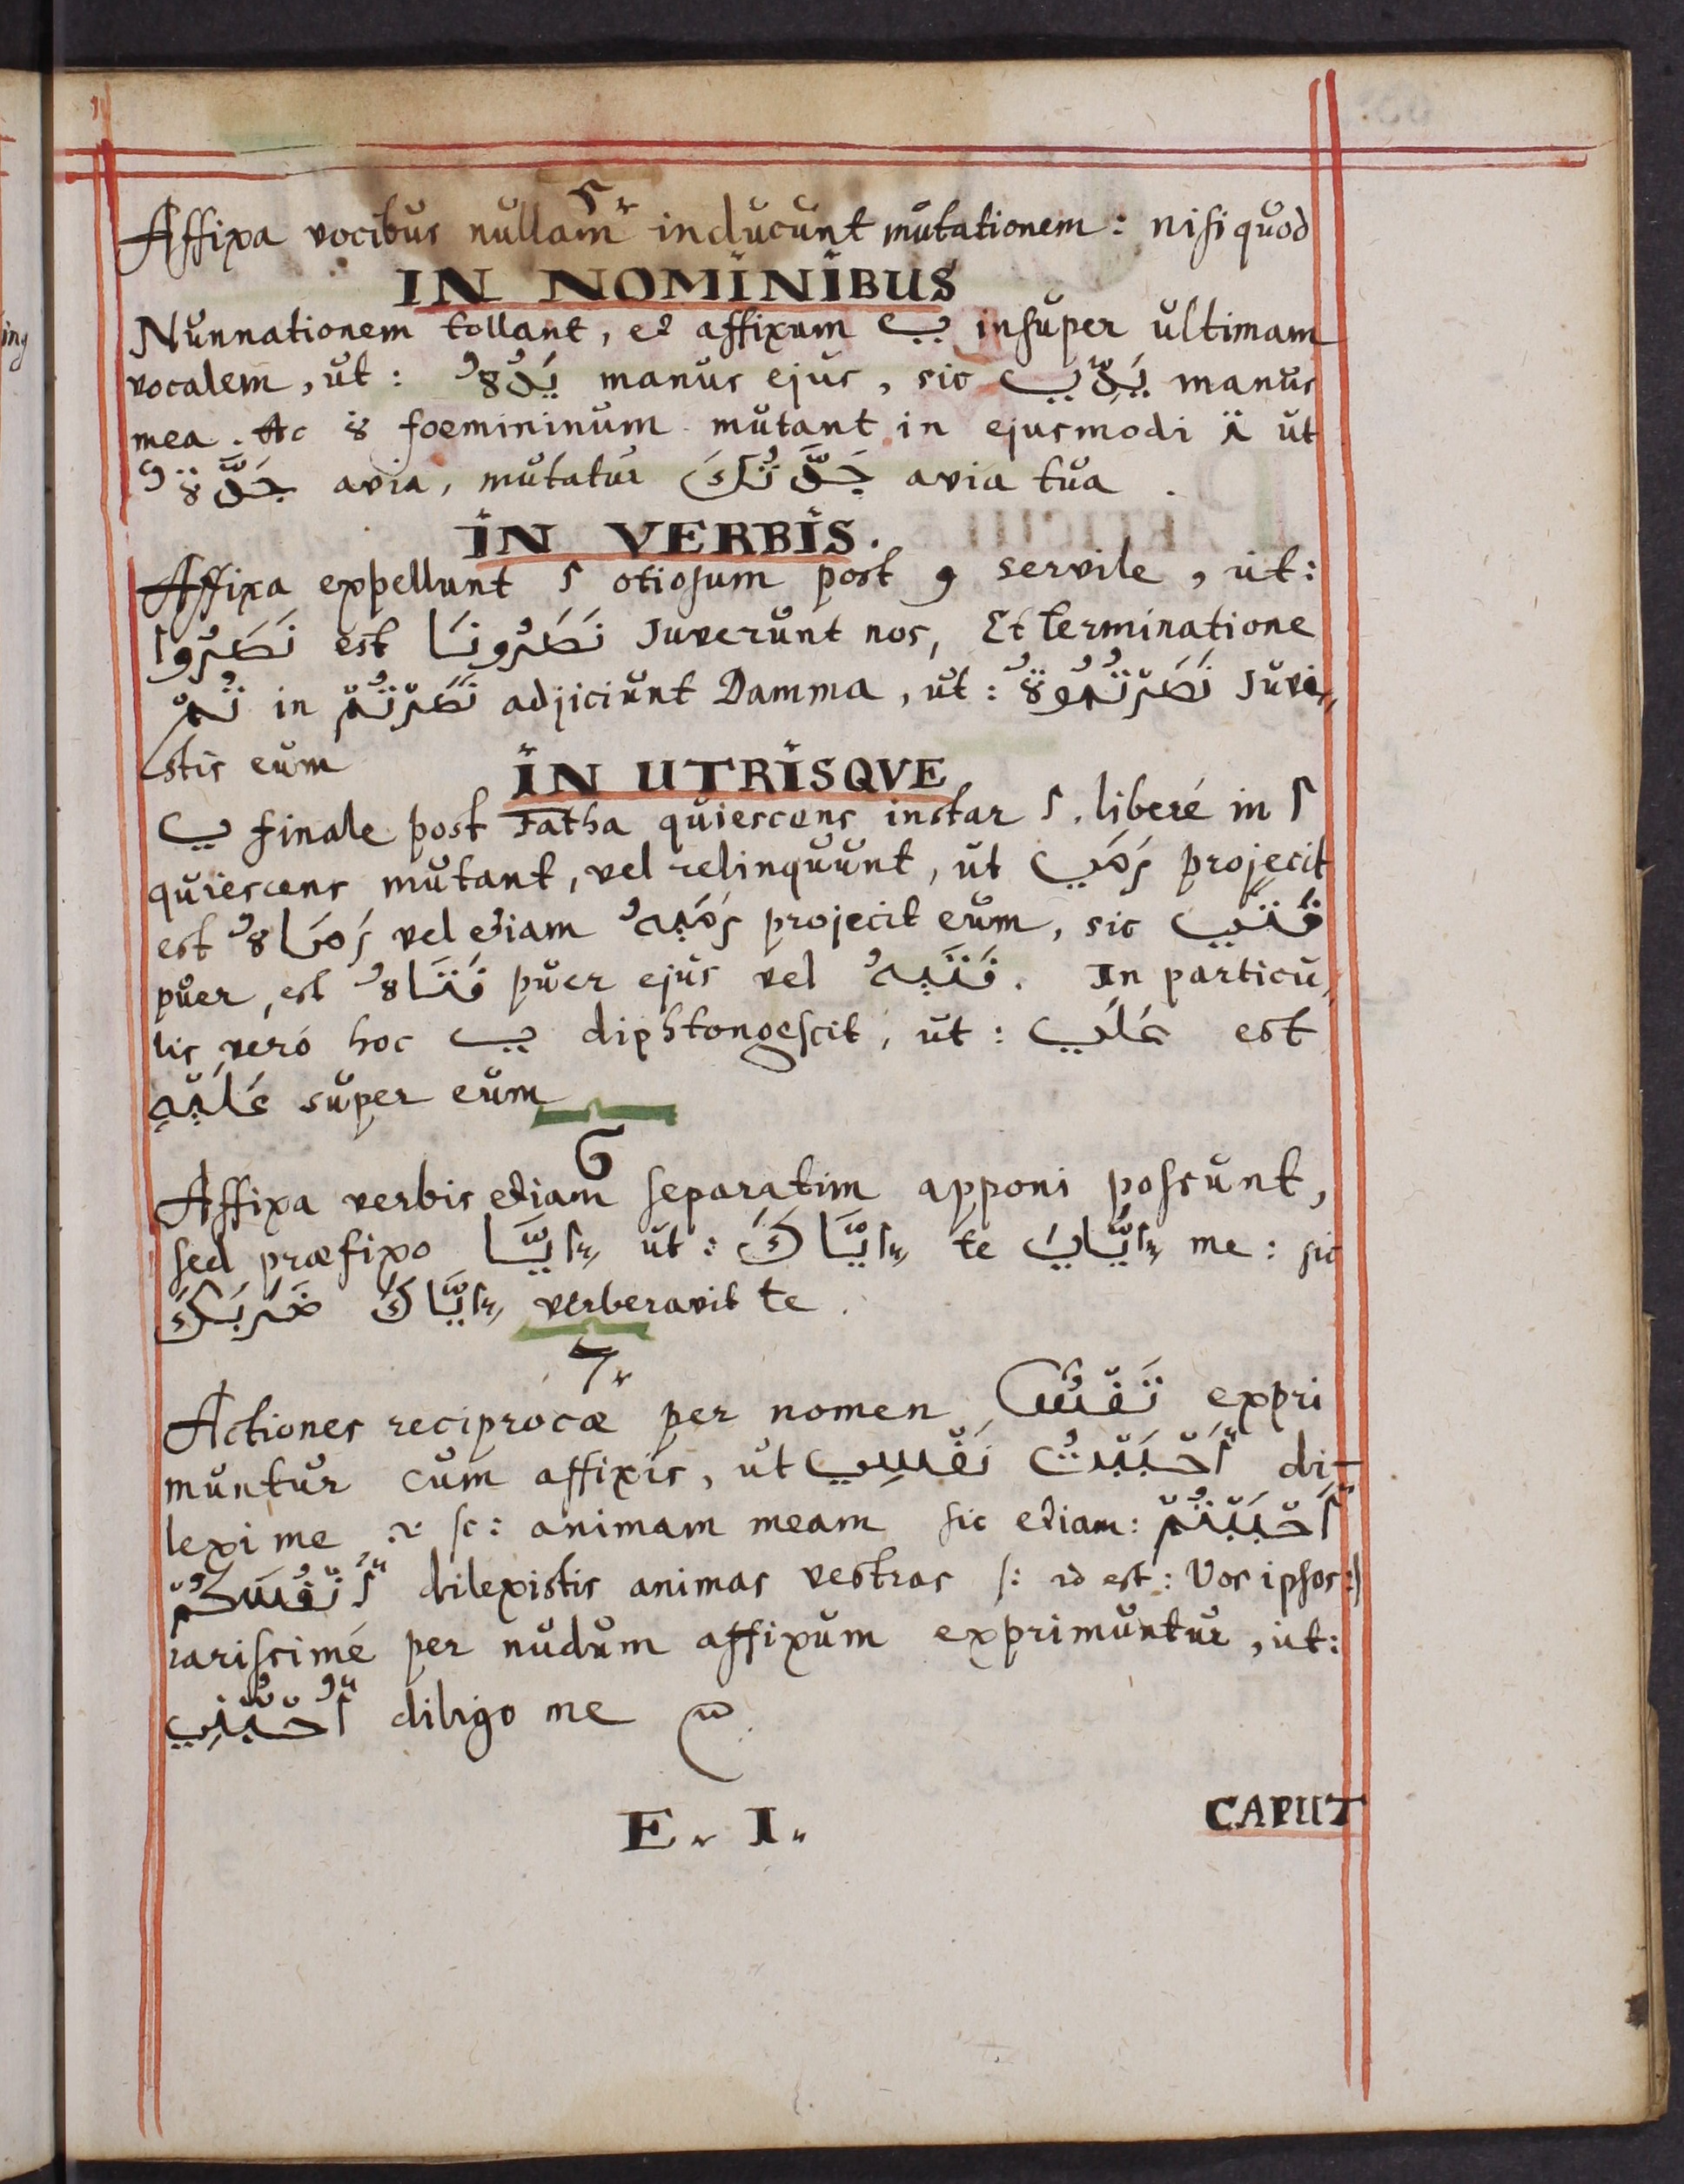 5.
Affixa vocibus nullam inducunt mutationem: nisi quod
IN NOMINIBUS
Nunnationem tollant, et affixum ي insuper ultimam
vocalem, ut: يَدُهُ manus ejus, sic يَدِّي manus
mea. Ac ة foemininum mutant in ejusmodi ت ut
جَدَّةٌ avia, mutatur جَدَّتُكَ avia tua.
IN VERBIS.
Affixa expellunt ا otiosum post و servile, ut:
نَصَرُوا est نَصَرُونَا Juverunt nos, Et terminatione
تُمْ in نَصَرْتُمْ adjiciunt Damma, ut: نَصَرْتُمُوهُ Juvi„
stis eum
IN UTRISQVE
ي finale post Fatha quiescens instar ا. liberé in ا
quiescens mutant, vel relinquunt, ut رَمَي projecit
est رَمَاهُ vel etiam رَمَيهُ projecit eum, sic فَتَي
puer, est فَتَاهُ puer ejus vel فَتَيهُ. In particu„
lis veró hoc ي diphtongescit, ut: عَلَي est
عَلَيْهِ super eum
6
Affixa verbis etiam separatim apponi possunt,
sed præfixo إيَّا ut: إيَّاكَ te إيَّايَ me: sic
ضَرَبَكَ إيَّاكَ verberavit te.
7.
Actiones reciprocæ per nomen نَفْسٌ expri
muntur cum affixis, ut أَحْبَبْتُ نَفْسِي di-
lexi me sc: animam meam sic etiam: أَحْبَبْتُمْ
أَنْفُسَكُمْ dilexistis animas vestras /: id est: Vos ipsos:/
rariscimé per nudum affixum exprimuntur, ut:
أُحِبُّنِي diligo me
E. I.
CAPUT